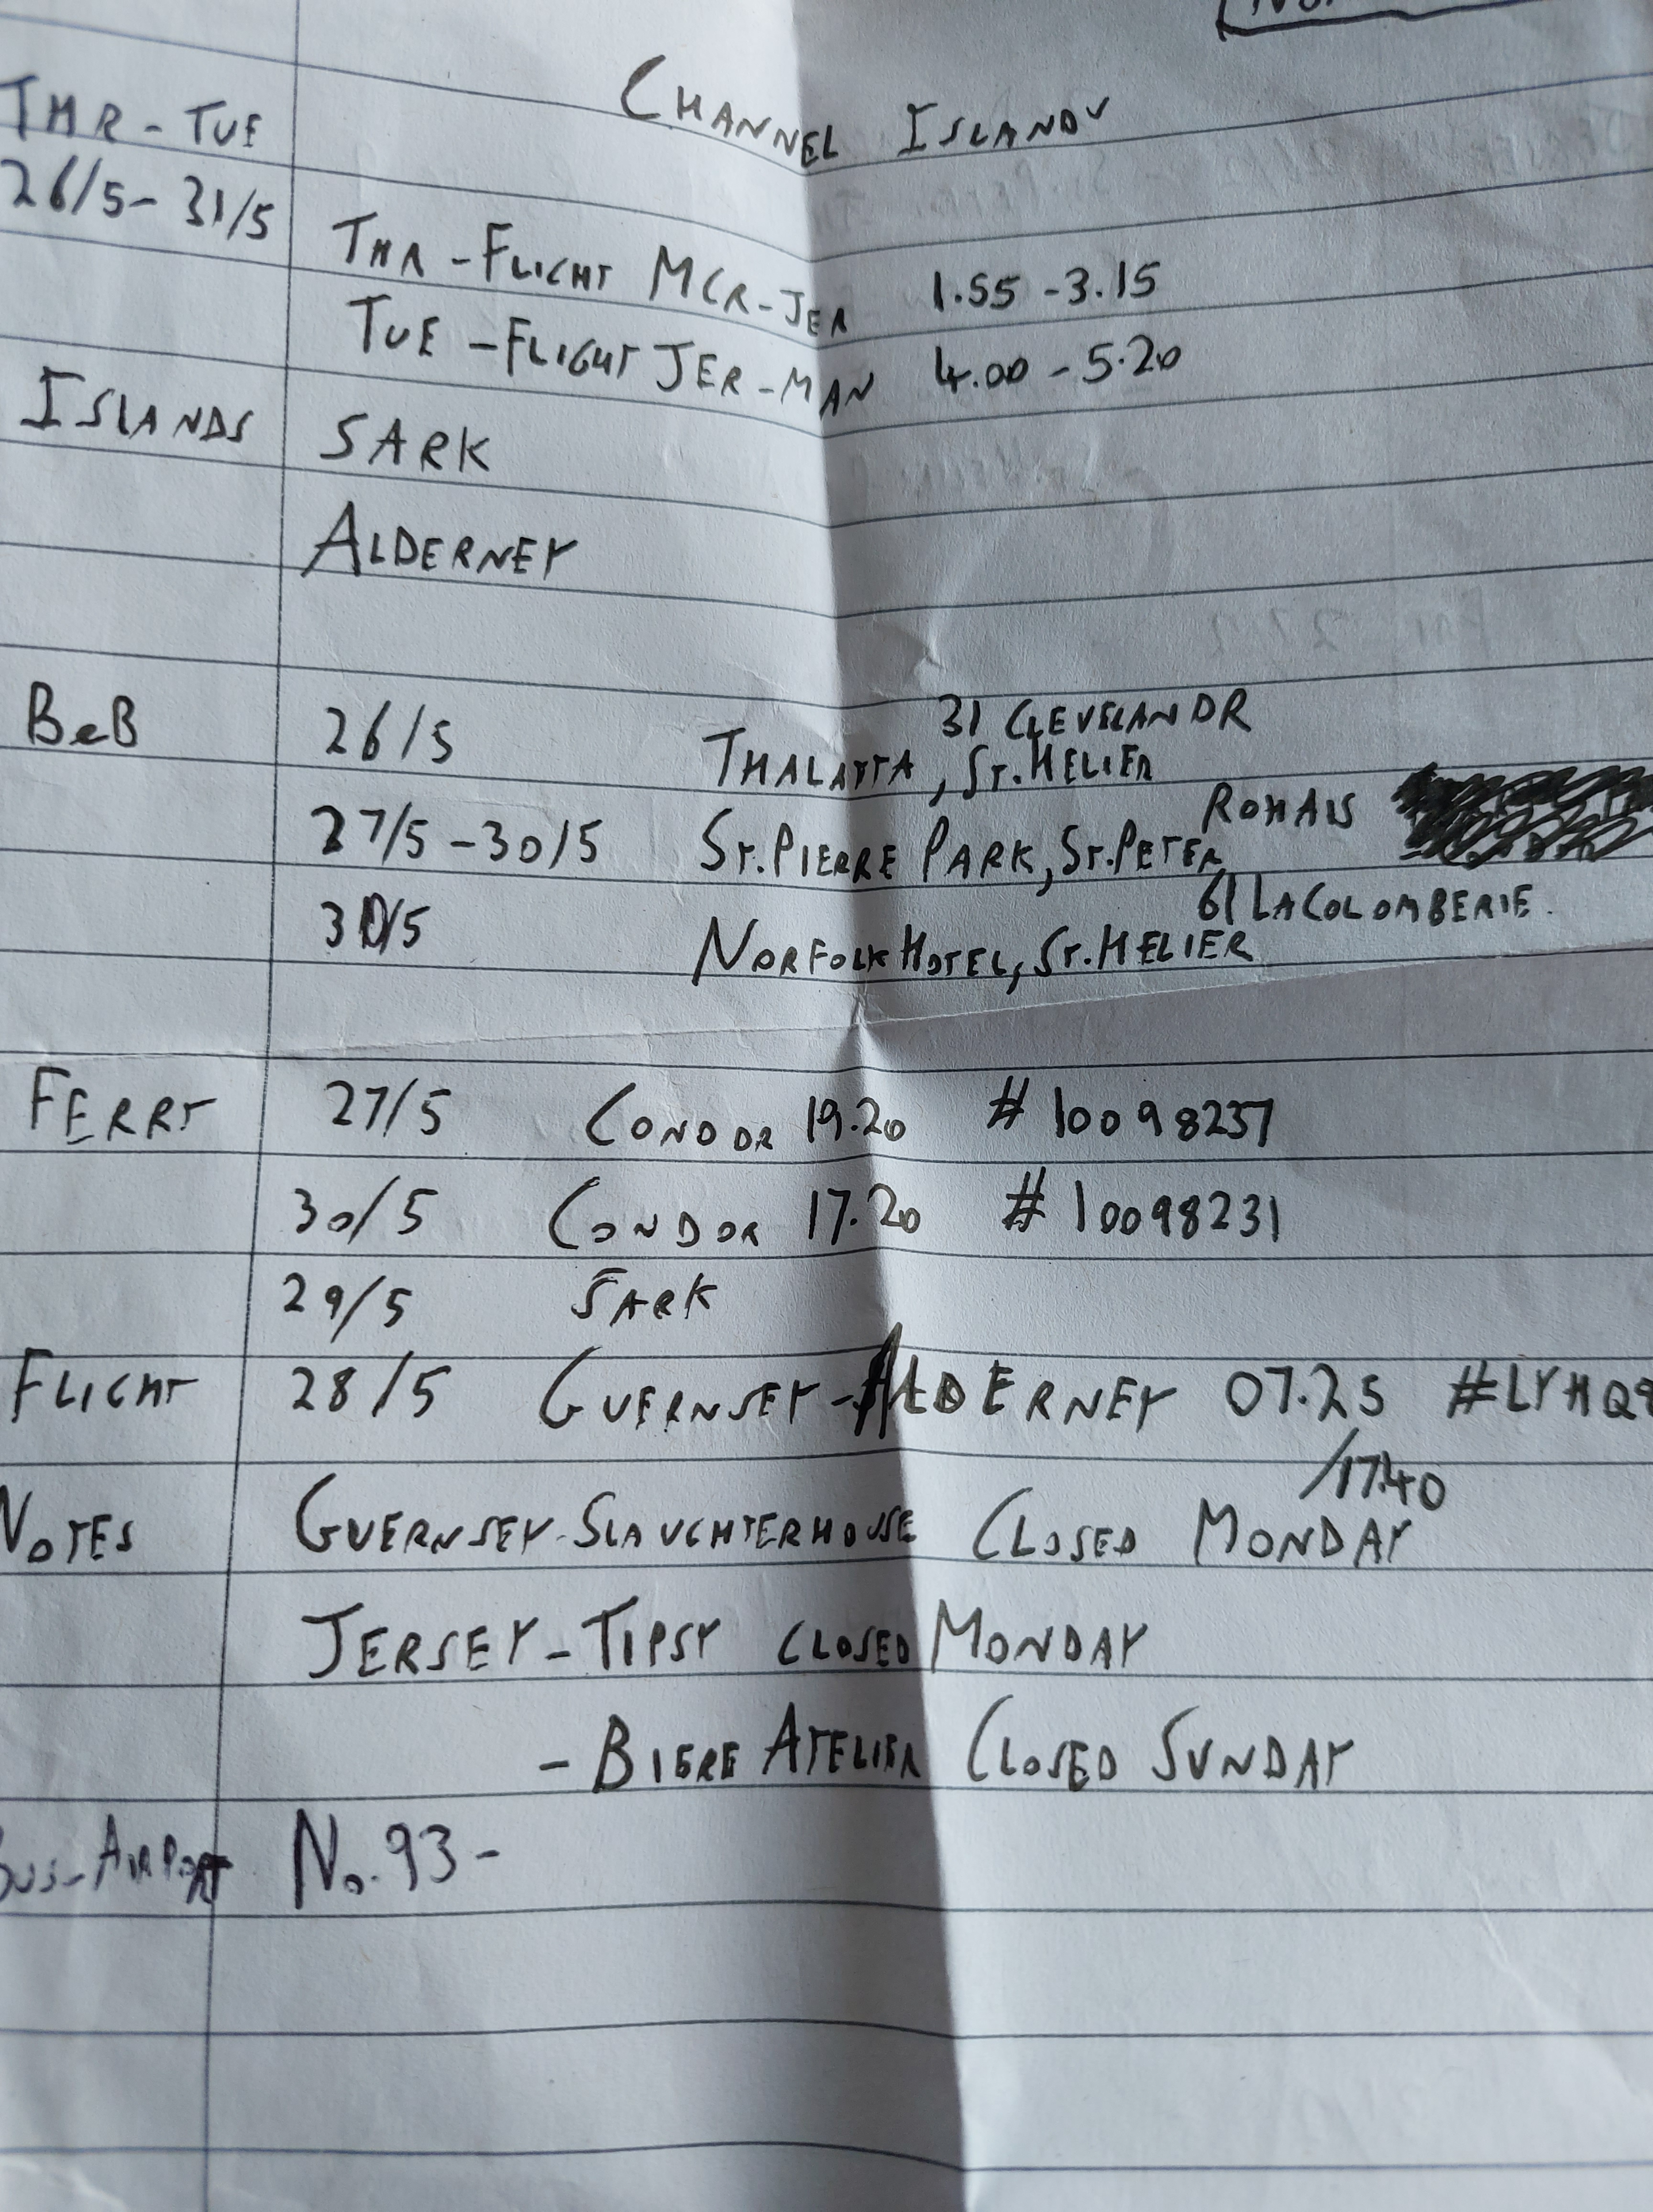 CHANNEL ISLANDS
THR - TUE
26/5 - 31/5
THR - FLIGHT MCR - JER 1.55 - 3.15
TUE - FLIGHT JER - MAN 4.00 - 5.20
ISLANDS SARK
ALDERNEY
31 CLEVELAND R
BeB 26/5 THALATTA, ST. HELIER
ROHAIS
27/5 - 30/5 ST. PIERRE PARK, ST. PETER
61 LA COLOMBERIE.
30/5 NORFOLK HOTEL, ST. HELIER
FERRY 27/5 CONDOR 19.20 # 10098237
30/5 CONDOR 17.20 # 10098231
29/5 SARK
FLIGHT 28/5 GUERNSEY - ALDERNEY 07.25
/17.40
NOTES GUERNSEY - SLAUGHTERHOUSE CLOSED MONDAY
JERSEY - TIPSY CLOSED MONDAY
- BIERE ATELIER CLOSED SUNDAY
BUS - AIRPORT No. 93 -